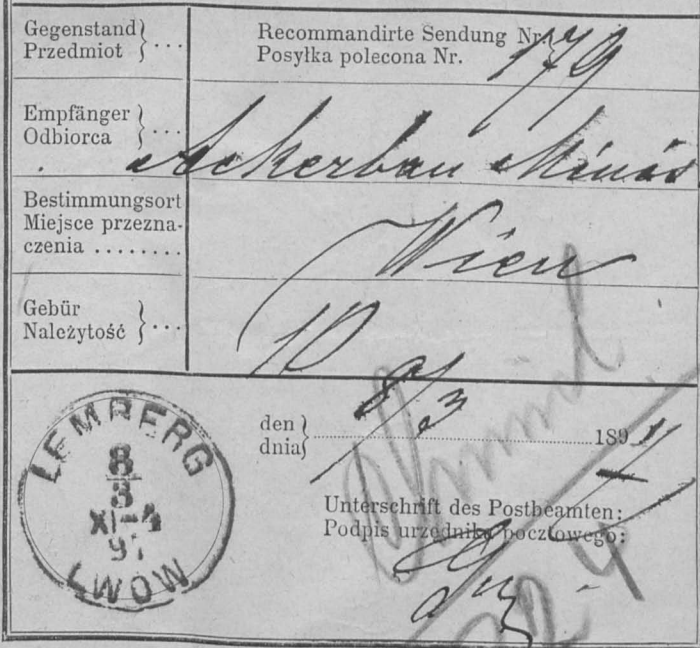 Gegenstand
Przedmiot
Recommandirte Sendung Nr.
Posyłka polecona Nr.
179
Empfänger
Odbiorca
Ackerbau Minis
Bestimmungsort
Miejsce przezna-
czenia ........
Wien
Gebür
Należytość
10
den
dnia
8/3
189
Unterschrift des Postbeamten:
Podpis urzędnika pocztowego:
LEMBERG
8
3
XI-4
LWOW